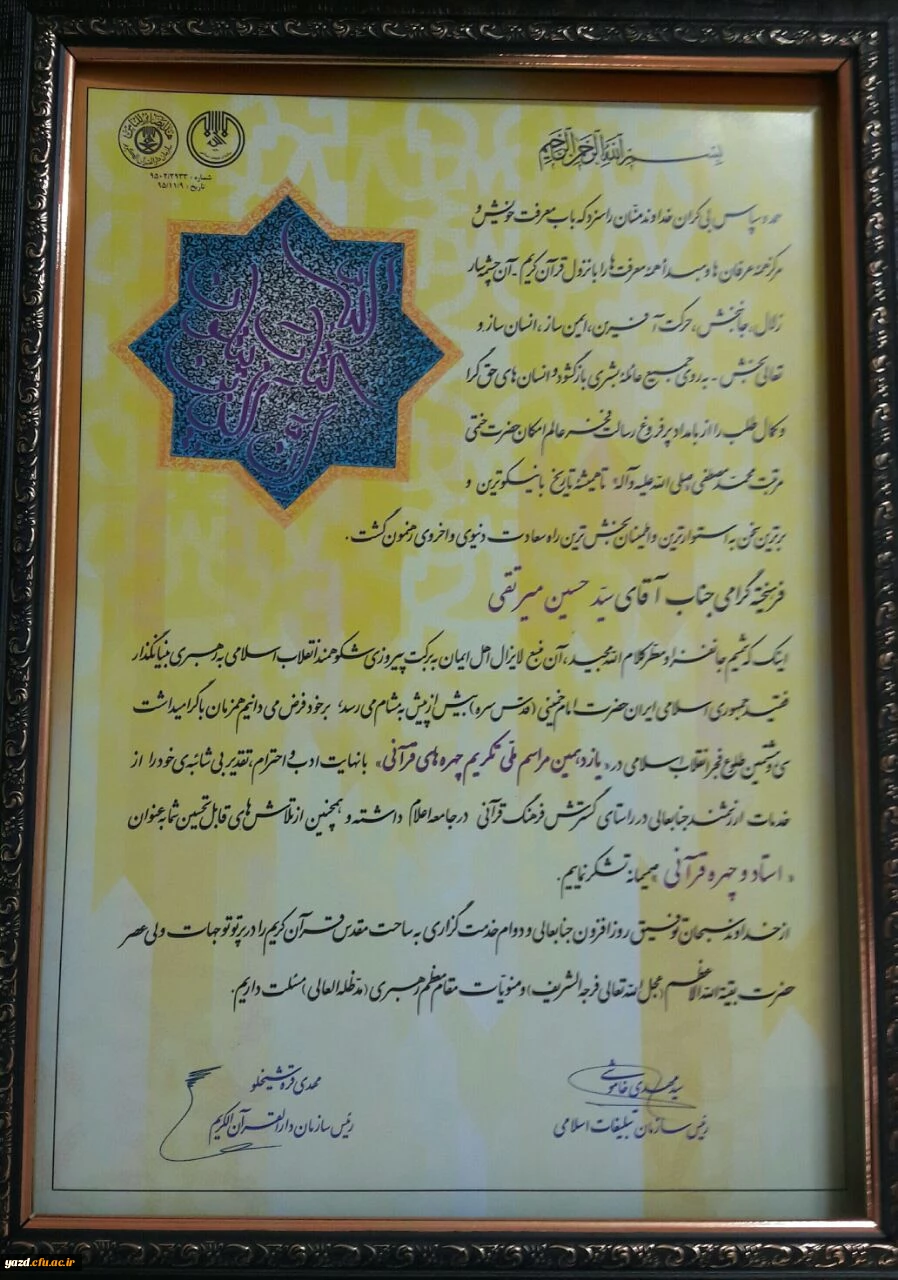 بسم الله الرحمن الرحیم
شماره: ۹۵۰۲/۲۹۳۳
تاریخ: ۹۵/۱۱/۹
حمد و سپاس بی کران خداوند منّان را سزد که باب معرفت خویش و
مرکز همهٔ عرفان ها و مبدأ همهٔ معرفت ها را با نزول قرآن کریم - آن چشمه سار
زلال، جانبخش، حرکت آفرین، ایمن ساز، انسان ساز و
تعالی بخش - به روی جمیع عائلهٔ بشری بازگشود و انسان های حق گرا
و کمال طلب را از بامداد پرفروغ رسالت فخر عالم امکان حضرت ختمی
مرتبت محمد مصطفی صلی الله علیه و آله تا همیشهٔ تاریخ با نیکوترین و
برترین سخن به استوارترین و اطمینان بخش ترین راه سعادت دنیوی و اخروی رهنمون گشت.
فرهیختهٔ گرامی جناب آقای سیّد حسین میرتقی
اینک که شمیم جانفزا و معطر کلام الله مجید، آن منبع لایزال اهل ایمان به برکت پیروزی شکوهمند انقلاب اسلامی به رهبری بنیانگذار
فقید جمهوری اسلامی ایران حضرت امام خمینی (قدّس سره) بیش از پیش به مشام می رسد؛ بر خود فرض می دانیم همزمان با گرامیداشت
سی و هشتمین طلوع فجر انقلاب اسلامی در « یازدهمین مراسم ملّی تکریم چهره های قرآنی» با نهایت ادب و احترام، تقدیر بی شائبه ی خود را از
خدمات ارزشمند جنابعالی در راستای گسترش فرهنگ قرآنی در جامعه اعلام داشته و همچنین از تلاش های قابل تحسین شما به عنوان
« استاد و چهره قرآنی » صمیمانه تشکر نماییم.
از خداوند سبحان توفیق روزافزون جنابعالی و دوام خدمت گزاری به ساحت مقدس قرآن کریم را در پرتو توجهات ولی عصر
حضرت بقیة الله الاعظم (عجل الله تعالی فرجه الشریف) و منویّات مقام معظم رهبری (مدّ ظله العالی) مسئلت داریم.
سید مهدی خاموشی
رئیس سازمان تبلیغات اسلامی
مهدی قره شیخلو
رئیس سازمان دارالقرآن الکریم
yazd.cfu.ac.ir